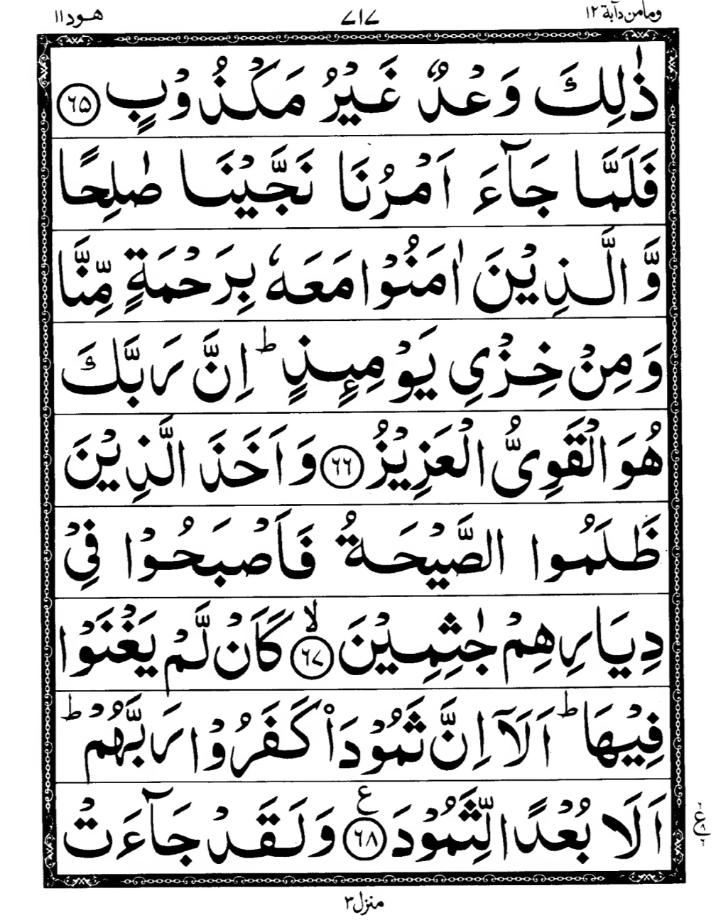 وما من دآبة ١٢ ٧١٧ هود ١١
ذٰلِكَ وَعْدٌ غَيْرُ مَكْذُوْبٍ ﴿٦٥﴾
فَلَمَّا جَآءَ اَمْرُنَا نَجَّيْنَا صٰلِحًا
وَّالَّذِيْنَ اٰمَنُوْا مَعَهٗ بِرَحْمَةٍ مِّنَّا
وَمِنْ خِزْيِ يَوْمِئِذٍ ؕ اِنَّ رَبَّكَ
هُوَ الْقَوِيُّ الْعَزِيْزُ ﴿٦٦﴾ وَاَخَذَ الَّذِيْنَ
ظَلَمُوا الصَّيْحَةُ فَاَصْبَحُوْا فِيْ
دِيَارِهِمْ جٰثِمِيْنَ ۙ﴿٦٧﴾ كَاَنْ لَّمْ يَغْنَوْا
فِيْهَا ؕ اَلَآ اِنَّ ثَمُوْدَا۟ كَفَرُوْا رَبَّهُمْ ؕ
اَلَا بُعْدًا لِّثَمُوْدَ ﴿٦٨﴾ ع وَلَقَدْ جَآءَتْ
منزل ٣